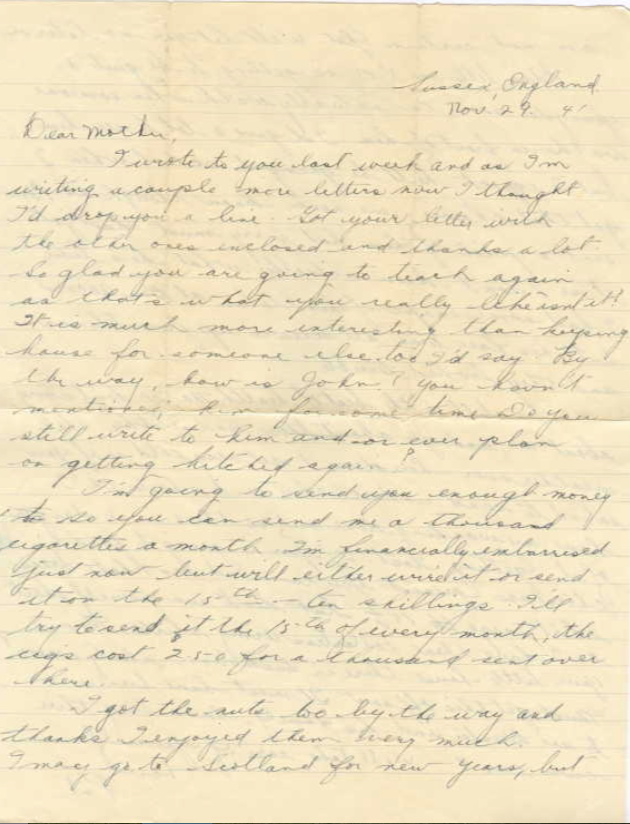 Sussex, England.
Nov. 29. 41
Dear Mother,
I wrote to you last week and as I'm
writing a couple more letters now I thought
I'd drop you a line. Got your letter with
the other ones enclosed and thanks a lot
So glad you are going to teach again
as that's what you really like isn't it?
It is much more interesting than keeping
house for someone else too I'd say By
the way, how is John? you havn't
mentioned him for some time Do you
still write to him and-or ever plan
on getting hitched again?
I'm going to send you enough money
to so you can send me a thousand
cigarettes a month. I'm financially embarrised
just now but will either wire it or send
it on the 15th — ten shillings. I'll
try to send it the 15th of every month, the
cigs cost 2.50 for a thousand sent over
here.
I got the nuts too by the way and
thanks I enjoyed them very much.
I may go to Scotland for new years, but